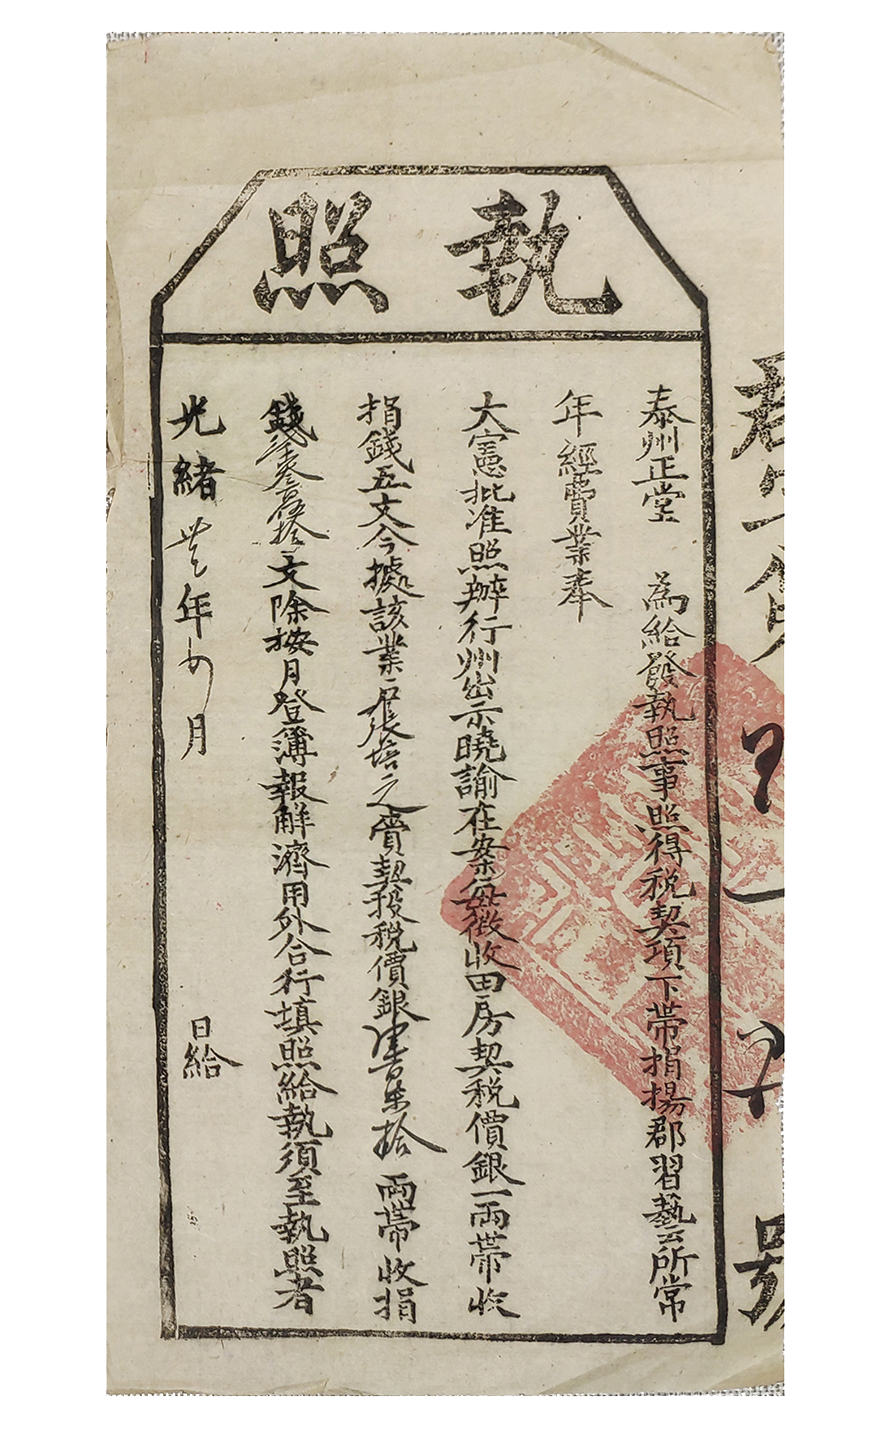 執照
泰州正堂 為給發執照事照得稅契項下帶捐揚郡習藝所常
年經費業奉
大憲批准照辦行州出示曉諭在案每徵收田房契稅價銀一兩帶收
捐錢五文今據該業戶張培之賫契投稅價銀拾兩帶收捐
錢叁百拾文除按月登簿報解濟用外合行填照給執須至執照者
光緒年月 日給
號